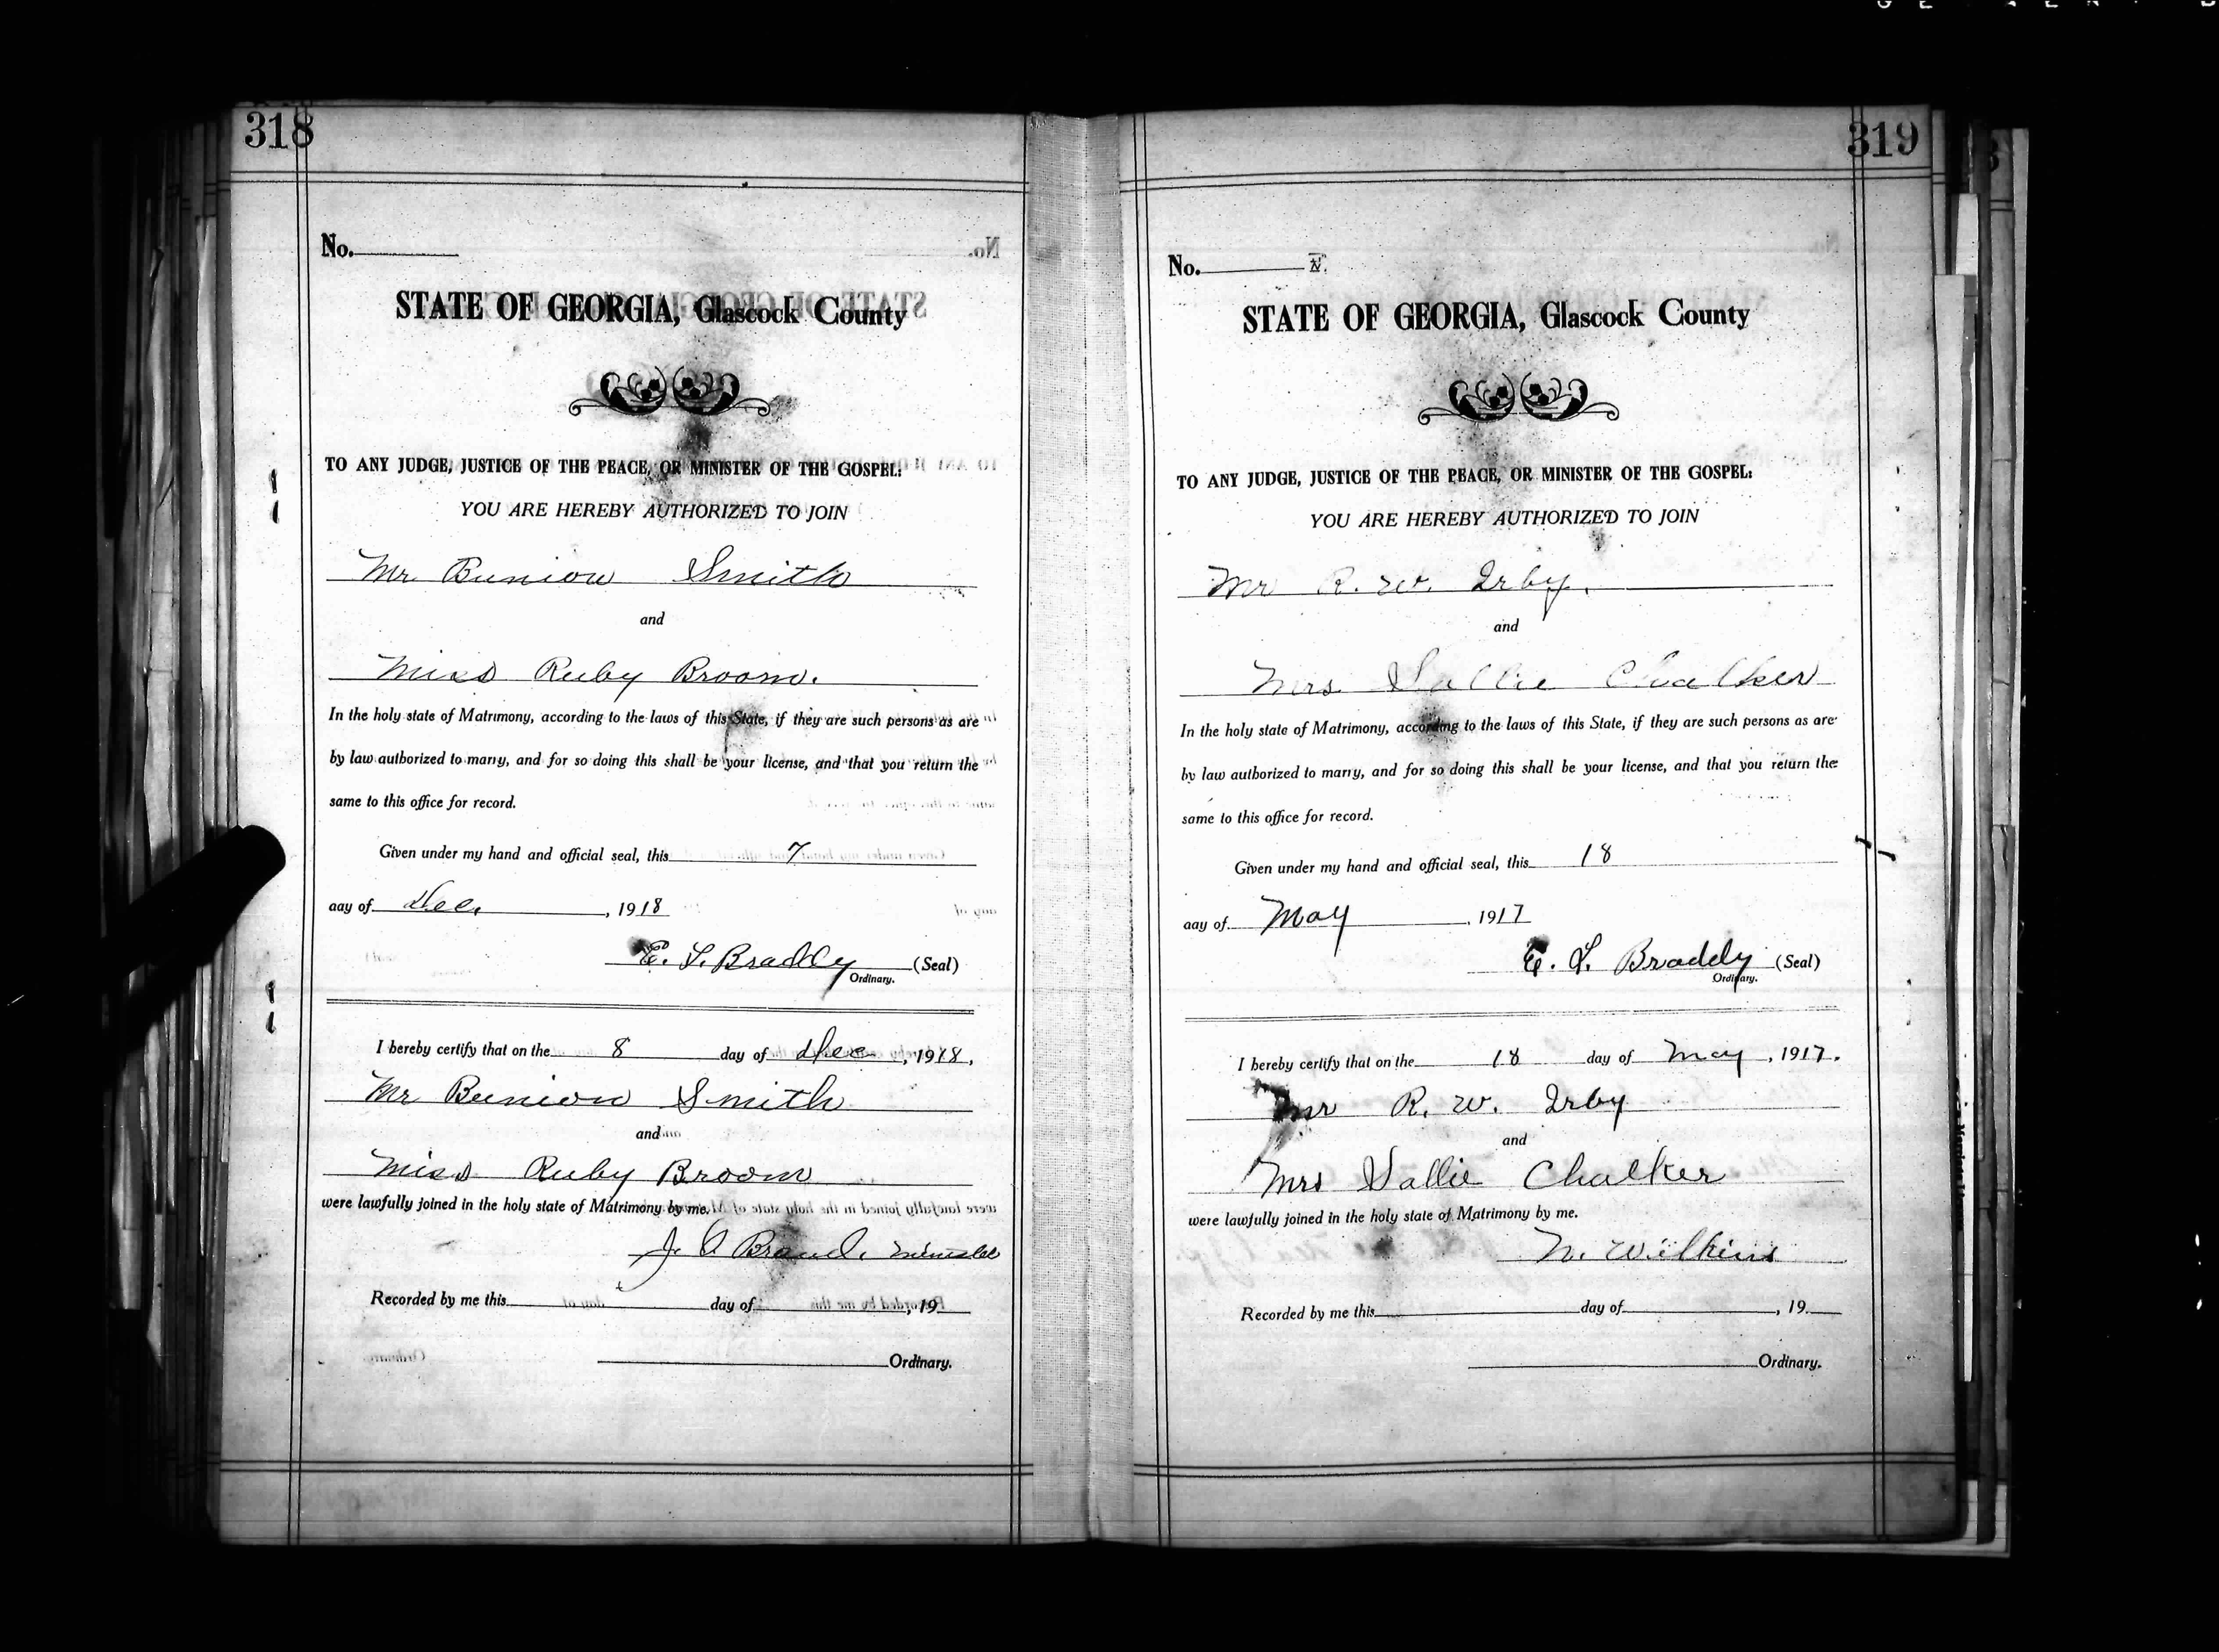 318
No.
STATE OF GEORGIA, Glascock County
TO ANY JUDGE, JUSTICE OF THE PEACE, OR MINISTER OF THE GOSPEL:
YOU ARE HEREBY AUTHORIZED TO JOIN
Mr. Bunion Smith
and
Miss Ruby Broom.
In the holy state of Matrimony, according to the laws of this State, if they are such persons as are
by law authorized to marry, and for so doing this shall be your license, and that you return the
same to this office for record.
Given under my hand and official seal, this 7
day of Dec. , 1918
E. L. Braddy (Seal)
Ordinary.
I hereby certify that on the 8 day of Dec , 1918,
Mr Bunion Smith
and
Miss Ruby Broom
were lawfully joined in the holy state of Matrimony by me.
J. A Brand. Minister
Recorded by me this day of , 19
Ordinary.
319
No.
STATE OF GEORGIA, Glascock County
TO ANY JUDGE, JUSTICE OF THE PEACE, OR MINISTER OF THE GOSPEL:
YOU ARE HEREBY AUTHORIZED TO JOIN
Mr R. W. Irby.
and
Mrs. Sallie Chalker
In the holy state of Matrimony, according to the laws of this State, if they are such persons as are
by law authorized to marry, and for so doing this shall be your license, and that you return the
same to this office for record.
Given under my hand and official seal, this 18
day of May , 1917
E. L. Braddy (Seal)
Ordinary.
I hereby certify that on the 18 day of May , 1917.
Mr R. W. Irby
and
Mrs Sallie Chalker
were lawfully joined in the holy state of Matrimony by me.
N. Wilkins
Recorded by me this day of , 19
Ordinary.